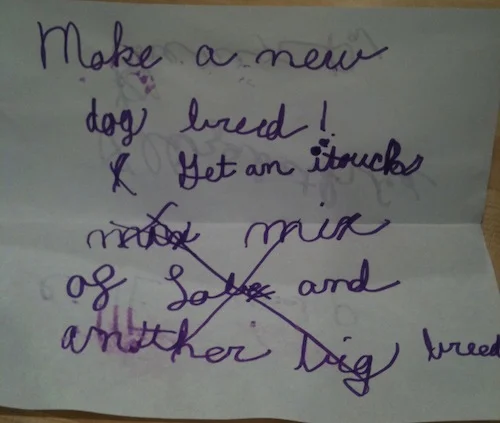 Make a new
dog breed!
x Get an itrucks
mix mix
of Lab and
another big breed